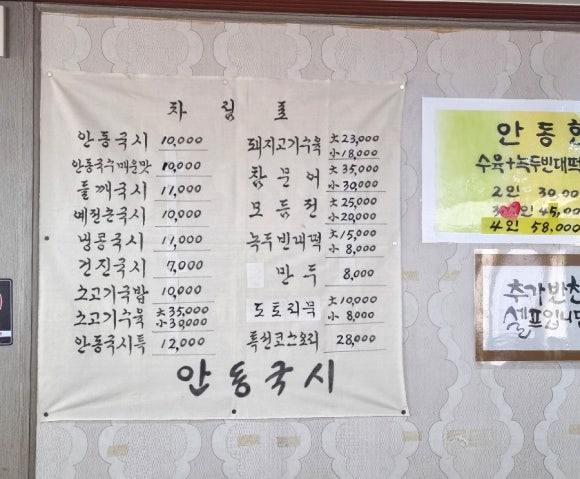 차림표
안동국시 10,000
안동국수매운맛 10,000
들깨국시 11,000
메밀온국시 10,000
냉콩국시 11,000
건진국시 7,000
소고기국밥 10,000
소고기수육 大 35,000
小 30,000
안동국시특 12,000
돼지고기수육 大 23,000
小 18,000
참문어 大 35,000
小 30,000
모듬전 大 25,000
小 20,000
녹두빈대떡 大 15,000
小 8,000
만두 8,000
도토리묵 大 10,000
小 8,000
특선코스요리 28,000
안동국시
안동한
수육+녹두빈대떡
2인 30,00
인 45,00
4인 58,000
추가반찬
셀프입니다